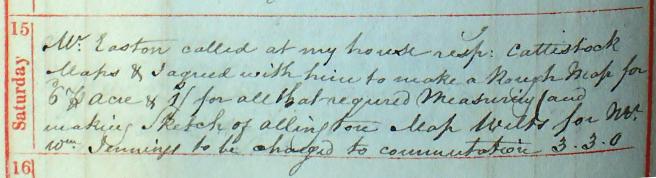 15
Saturday
Mr. Easton called at my house resp: Cattistock
Maps & I agreed with him to make a Rough Map for
3d acre & 1/ for all that required Measuring (and
making Sketch of Allington Map Wilts for Mr.
Wm. Jennings to be charged to commutation 3.3.0
16